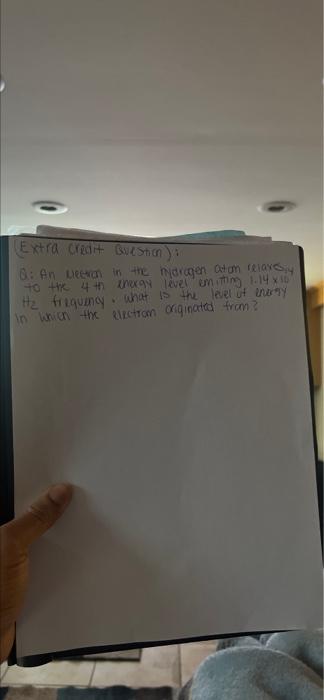 (Extra credit Question):
Q: An electron in the hydrogen atom relaxes
to the 4th energy level emitting 1.14 x 10¹⁴
Hz frequency. what is the level of energy
in which the electron originated from?